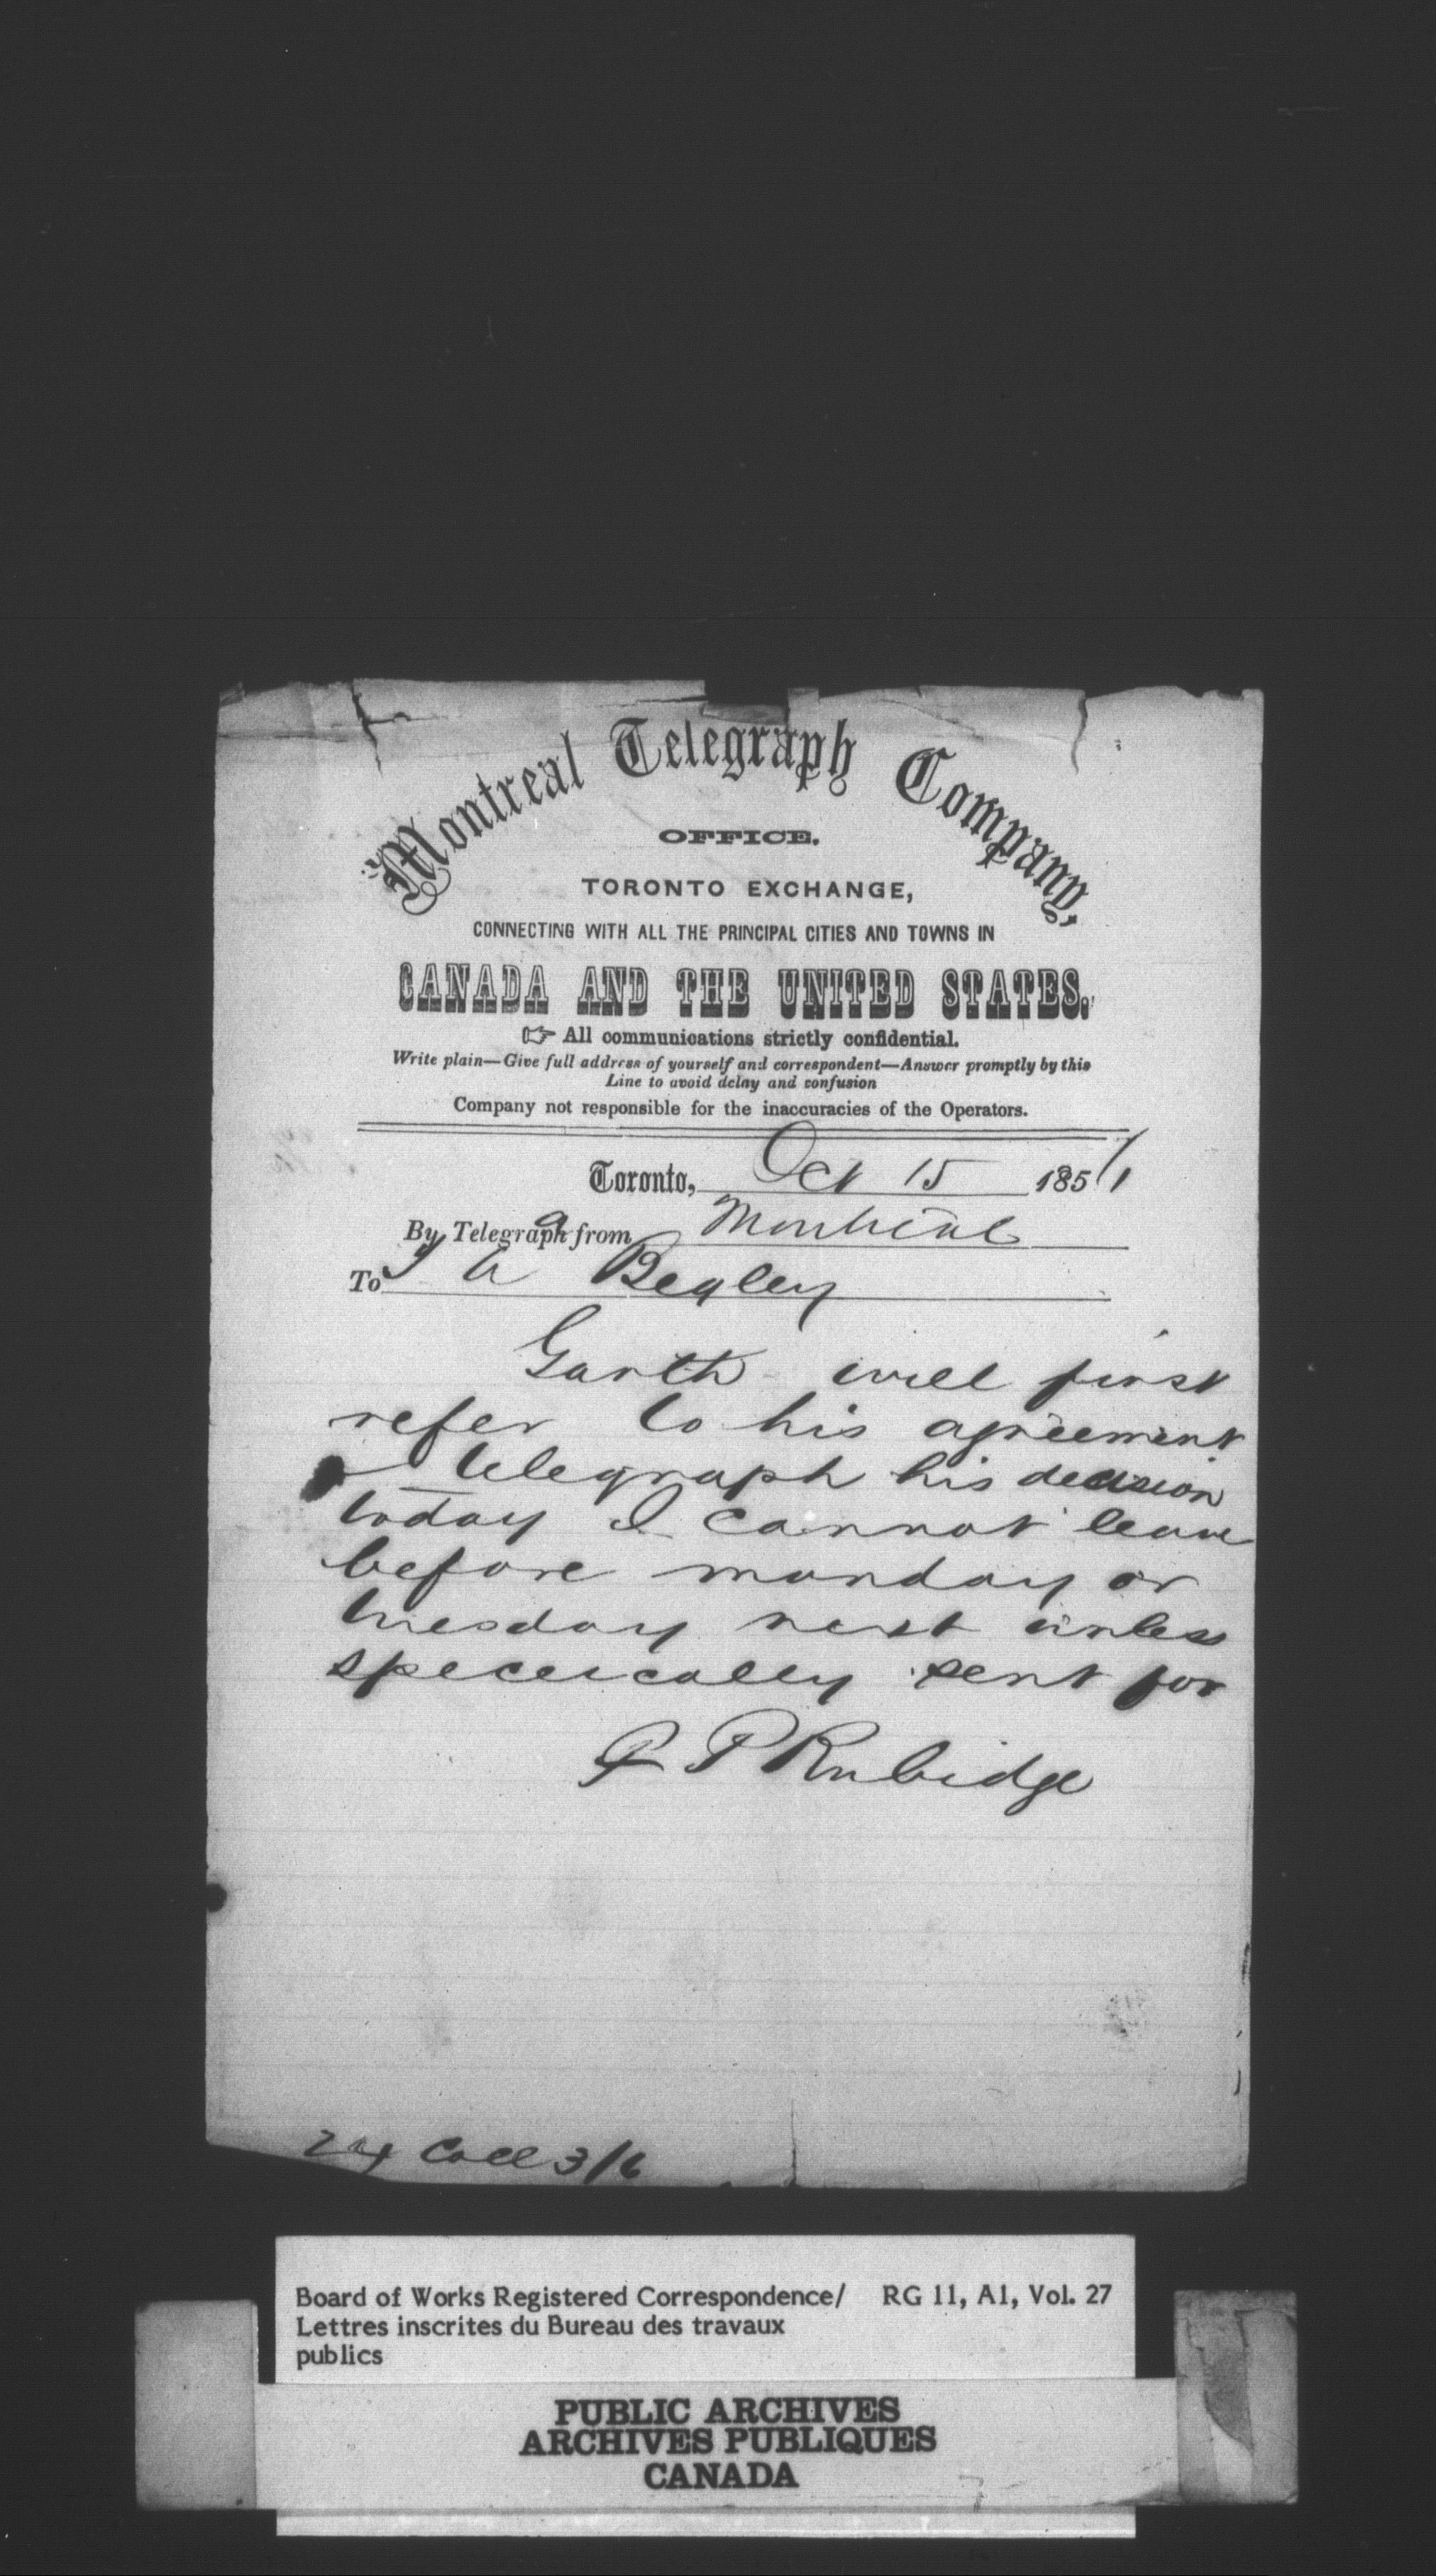 Montreal Telegraph Company,
OFFICE.
TORONTO EXCHANGE,
CONNECTING WITH ALL THE PRINCIPAL CITIES AND TOWNS IN
CANADA AND THE UNITED STATES.
☞ All communications strictly confidential.
Write plain—Give full address of yourself and correspondent—Answer promptly by this
Line to avoid delay and confusion
Company not responsible for the inaccuracies of the Operators.
Toronto, Oct 15 1851
By Telegraph from Montreal
To T A Begley
Garth will first
refer to his agreement
& telegraph his decision
today I cannot leave
before monday or
tuesday next unless
specically sent for
F P Rubidge
Coll 3/6
Board of Works Registered Correspondence/ RG 11, A1, Vol. 27
Lettres inscrites du Bureau des travaux
publics
PUBLIC ARCHIVES
ARCHIVES PUBLIQUES
CANADA